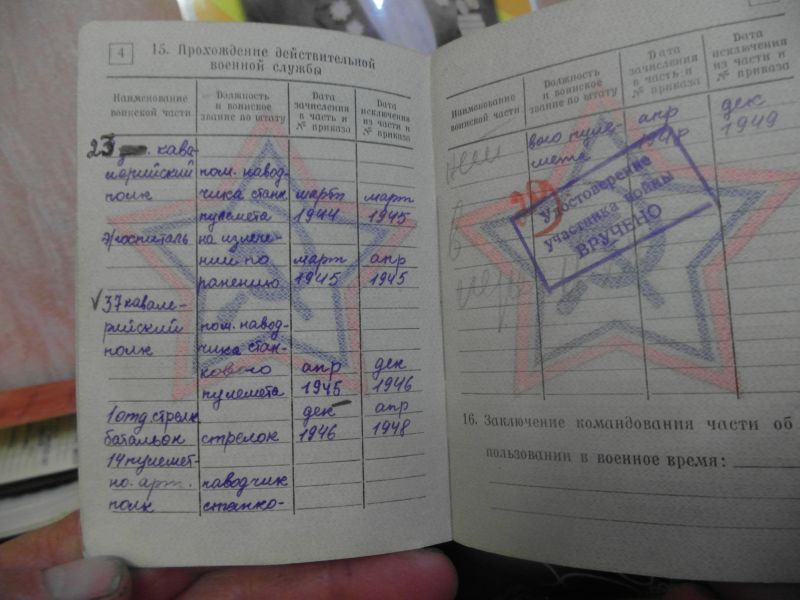 4
15. Прохождение действительной
военной службы
Наименование
воинской части
Должность
и воинское
звание по штату
Дата
зачисления
в часть и
№ приказа
Дата
исключения
из части и
№ приказа
23 кава-
лерийский пом. навод-
полк чика станк март март
пулемета 1944 1945
э/госпиталь на излече-
нии по март апр
ранению 1945 1945
√ 37 кавале-
рийский пом. навод-
полк чика стан-
кового апр дек
пулемета 1945 1946
1 отд стрелк дек апр
батальон стрелок 1946 1948
14 пулемет-
но. арт. наводчик
полк станко-
Наименование
воинской части
Должность
и воинское
звание по штату
Дата
зачисления
в часть и
№ приказа
Дата
исключения
из части и
№ приказа
вого пуле- апр дек
мета 1949
Удостоверение
участника войны
ВРУЧЕНО
16. Заключение командования части об
пользовании в военное время: